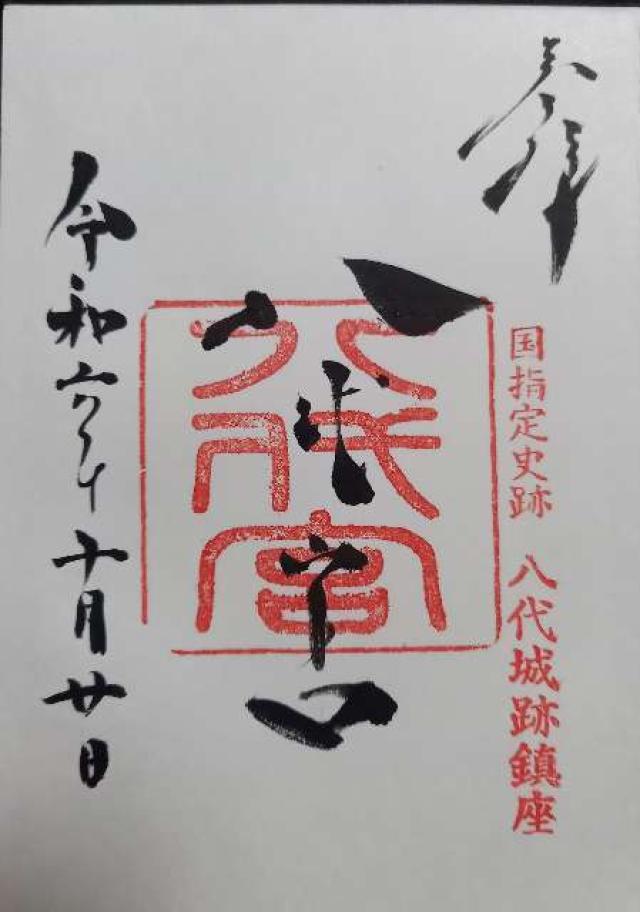 奉拝
国指定史跡 八代城跡鎮座
八代宮
八代宮
令和六年十月廿日